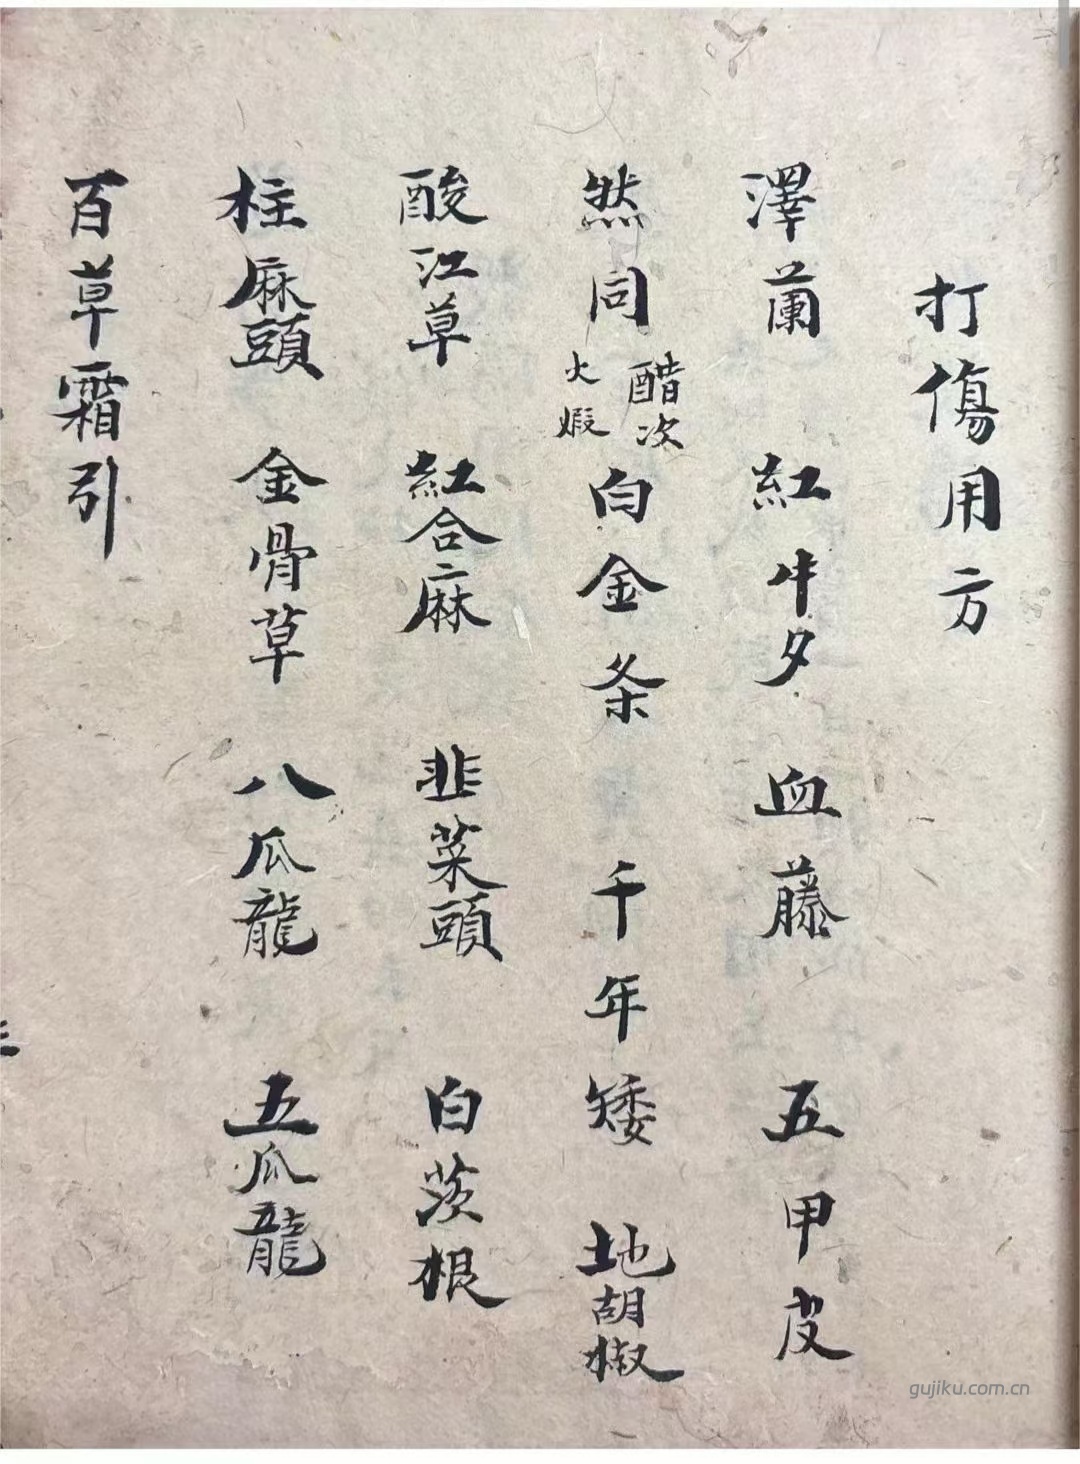 打傷用方
澤蘭 紅牛夕 血藤 五甲皮
然同 醋次火煆 白金条 千年矮 地胡椒
酸江草 紅合麻 韭菜頭 白茨根
柱麻頭 金骨草 八瓜龍 五瓜龍
百草霜引
gujiku.com.cn